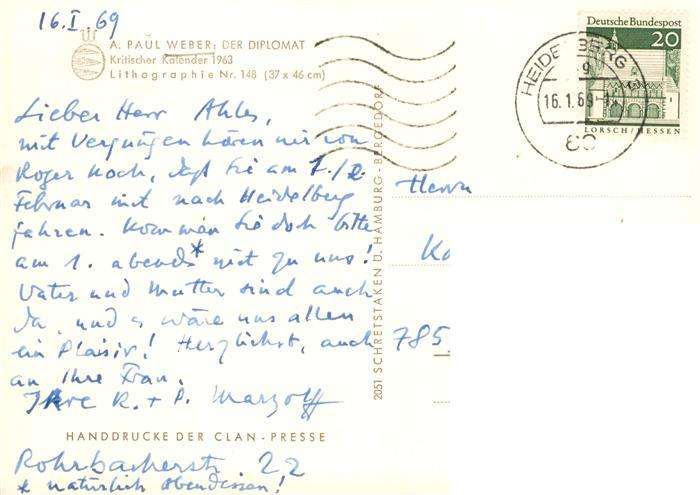 16.I.69
A. PAUL WEBER: DER DIPLOMAT
Kritischer Kalender 1963
Lithographie Nr. 148 (37 x 46 cm)
Lieber Herr Ahles,
mit Vergnügen hören wir von
Roger Koch, daß Sie am 1./2.
Februar mit nach Heidelberg
fahren. Kommen Sie doch bitte
am 1. abends* mit zu uns!
Vater und Mutter sind auch
da, und es wäre uns allen
ein Plaisir! Herzlichst, auch
an Ihre Frau,
Ihre R. + P. Marzolff
HANDDRUCKE DER CLAN-PRESSE
Rohrbacherstr. 22
* natürlich Abendessen!
2051 SCHRETSTAKEN Ü. HAMBURG-BERGEDORF
Deutsche Bundespost
20
LORSCH/HESSEN
HEIDELBERG
9
16.1.69
Herrn
Ko
785